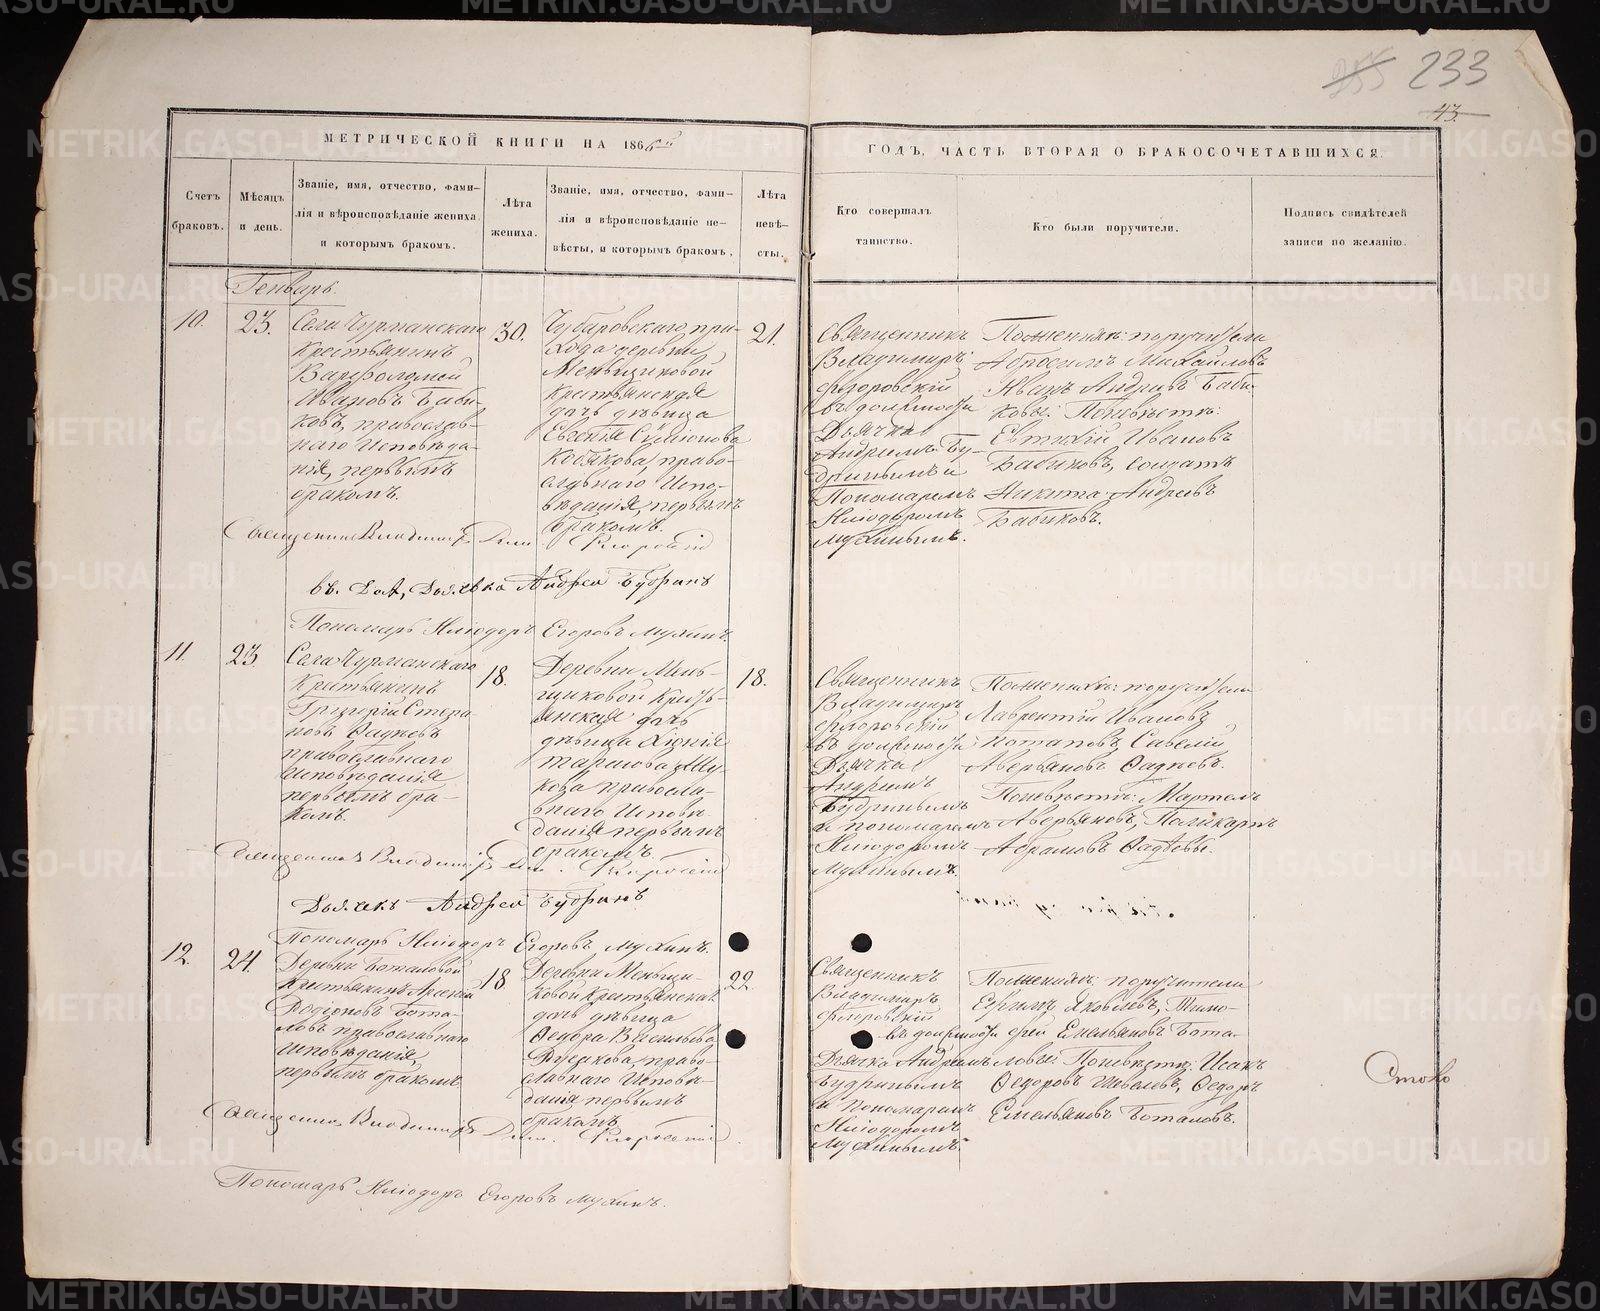 233
43.
МЕТРИЧЕСКОЙ КНИГИ НА 1866й
ГОДЪ, ЧАСТЬ ВТОРАЯ О БРАКОСОЧЕТАВШИХСЯ.
Счетъ
браковъ.
Мѣсяцъ
и день.
Званіе, имя, отчество, фами-
лія и вѣроисповѣданіе жениха
и которымъ бракомъ.
Лѣта
жениха.
Званіе, имя, отчество, фами-
лія и вѣроисповѣданіе не-
вѣсты, и которымъ бракомъ,
Лѣта
невѣ-
сты.
Кто совершалъ
таинство.
Кто были поручители.
Подпись свидѣтелей
записи по желанію.
Генварь.
10.
23.
Села Чурманскаго
Крестьянинъ
Варфоломей
Ивановъ Баби-
ковъ, православ-
наго Исповѣда-
нія, первымъ
бракомъ.
30.
Чубаровскаго при-
хода деревни
Меньщиковой
Крестьянская
дочь дѣвица
Евгенія
право-
славнаго Испо-
вѣданія, первымъ
бракомъ.
21.
Священникъ
Владимиръ
Флоровскій
въ должности
Дьячка
Андреемъ Бу-
дринымъ и
Пономаремъ
Иліодоромъ
Мухинымъ.
По женихѣ: поручители
Абросимъ Михайловъ
Иванъ Андреевъ Баби-
ковы: По невѣстѣ:
Евтихій Ивановъ
Бабиковъ, солдатъ
Никита Андреевъ
Бабиковъ.
Священникъ Владимиръ Флоровскій
въ дол, Дьячка Андрей Будринъ
Пономарь Иліодоръ Егоровъ Мухинъ.
11.
23.
Села Чурманскаго
Крестьянинъ
Григорій Степа-
новъ Фадѣевъ
православнаго
исповѣданія
первымъ бра-
комъ.
18.
Деревни Мень-
щиковой Кресть-
янская дочь
дѣвица Хіонія
Тарасова
православ-
наго Исповѣ-
данія первымъ
бракомъ.
18.
Священникъ
Владимиръ
Флоровскій
въ должности
Дьячка
Андреемъ
Будринымъ
и пономаремъ
Иліодоромъ
Мухинымъ.
По женихѣ: поручители
Лаврентій Ивановъ
Потаповъ, Савелій
Аверьяновъ Фадѣевъ.
По невѣстѣ: Мартемъ
Аверьяновъ, Поликарпъ
Абрамовъ Фадѣевы.
Священникъ Владимиръ Флоровскій
Дьячекъ Андрей Будринъ
Пономарь Иліодоръ Егоровъ Мухинъ.
12.
24.
Деревни Боталовой
Крестьянинъ Арсеній
Родіоновъ Бота-
ловъ православнаго
исповѣданія,
первымъ бракомъ
18
Деревни Меньщи-
ковой Крестьянская
дочь дѣвица
Ѳеодора Васильева
право-
славнаго Исповѣ-
данія первымъ
бракомъ
22.
Священникъ
Владимиръ
Флоровскій
въ должности
Дьячка Андреемъ
Будринымъ
и Пономаремъ
Иліодоромъ
Мухинымъ.
По женихѣ: поручители
Ефимъ Яковлевъ, Тимо-
фей Емельяновъ Бота-
ловы: По невѣстѣ: Исакъ
Ѳедоровъ Шевелевъ, Ѳедоръ
Емельяновъ Боталовъ.
Священникъ Владимиръ Флоровскій
Пономарь Иліодоръ Егоровъ Мухинъ.
METRIKI.GASO-URAL.RU